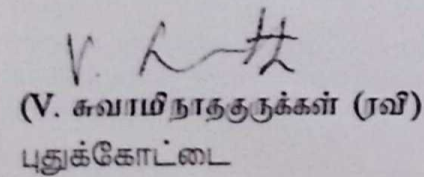 (V. சுவாமிநாதகுருக்கள் (ரவி)
புதுக்கோட்டை